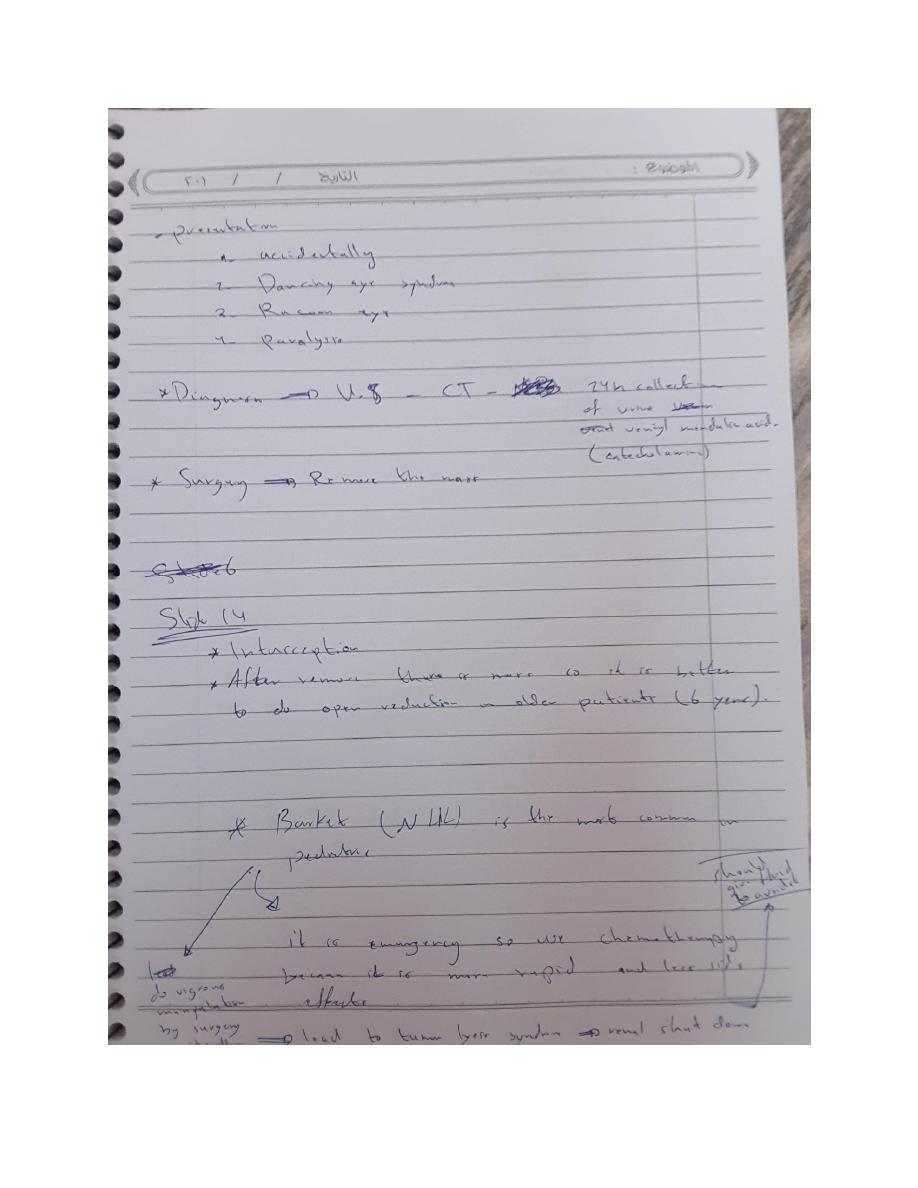 الموضوع :
التاريخ / / ٢٠١
- presentation
1- accidentally
2- Dancing eye syndrom
3- Racoon eye
4- paralysis
* Diagnosis ⇒ U.S - CT - 24h collection
of urine
venil mendalic acid.
(catecholamine)
* Surgery ⇒ Remove the mass
Slide 14
* Interception
* After remove there is mass so it is better
to do open reduction in older patients (6 years).
* Barket (NHL) is the most common in
pediatric
should
give fluid
to avoid it
it is emergency so use chemotherapy
because it is more rapid and less side
effects
do vigrous
manipulation
by surgery
⇒ lead to tumor lyses syndrom ⇒ renal shut down